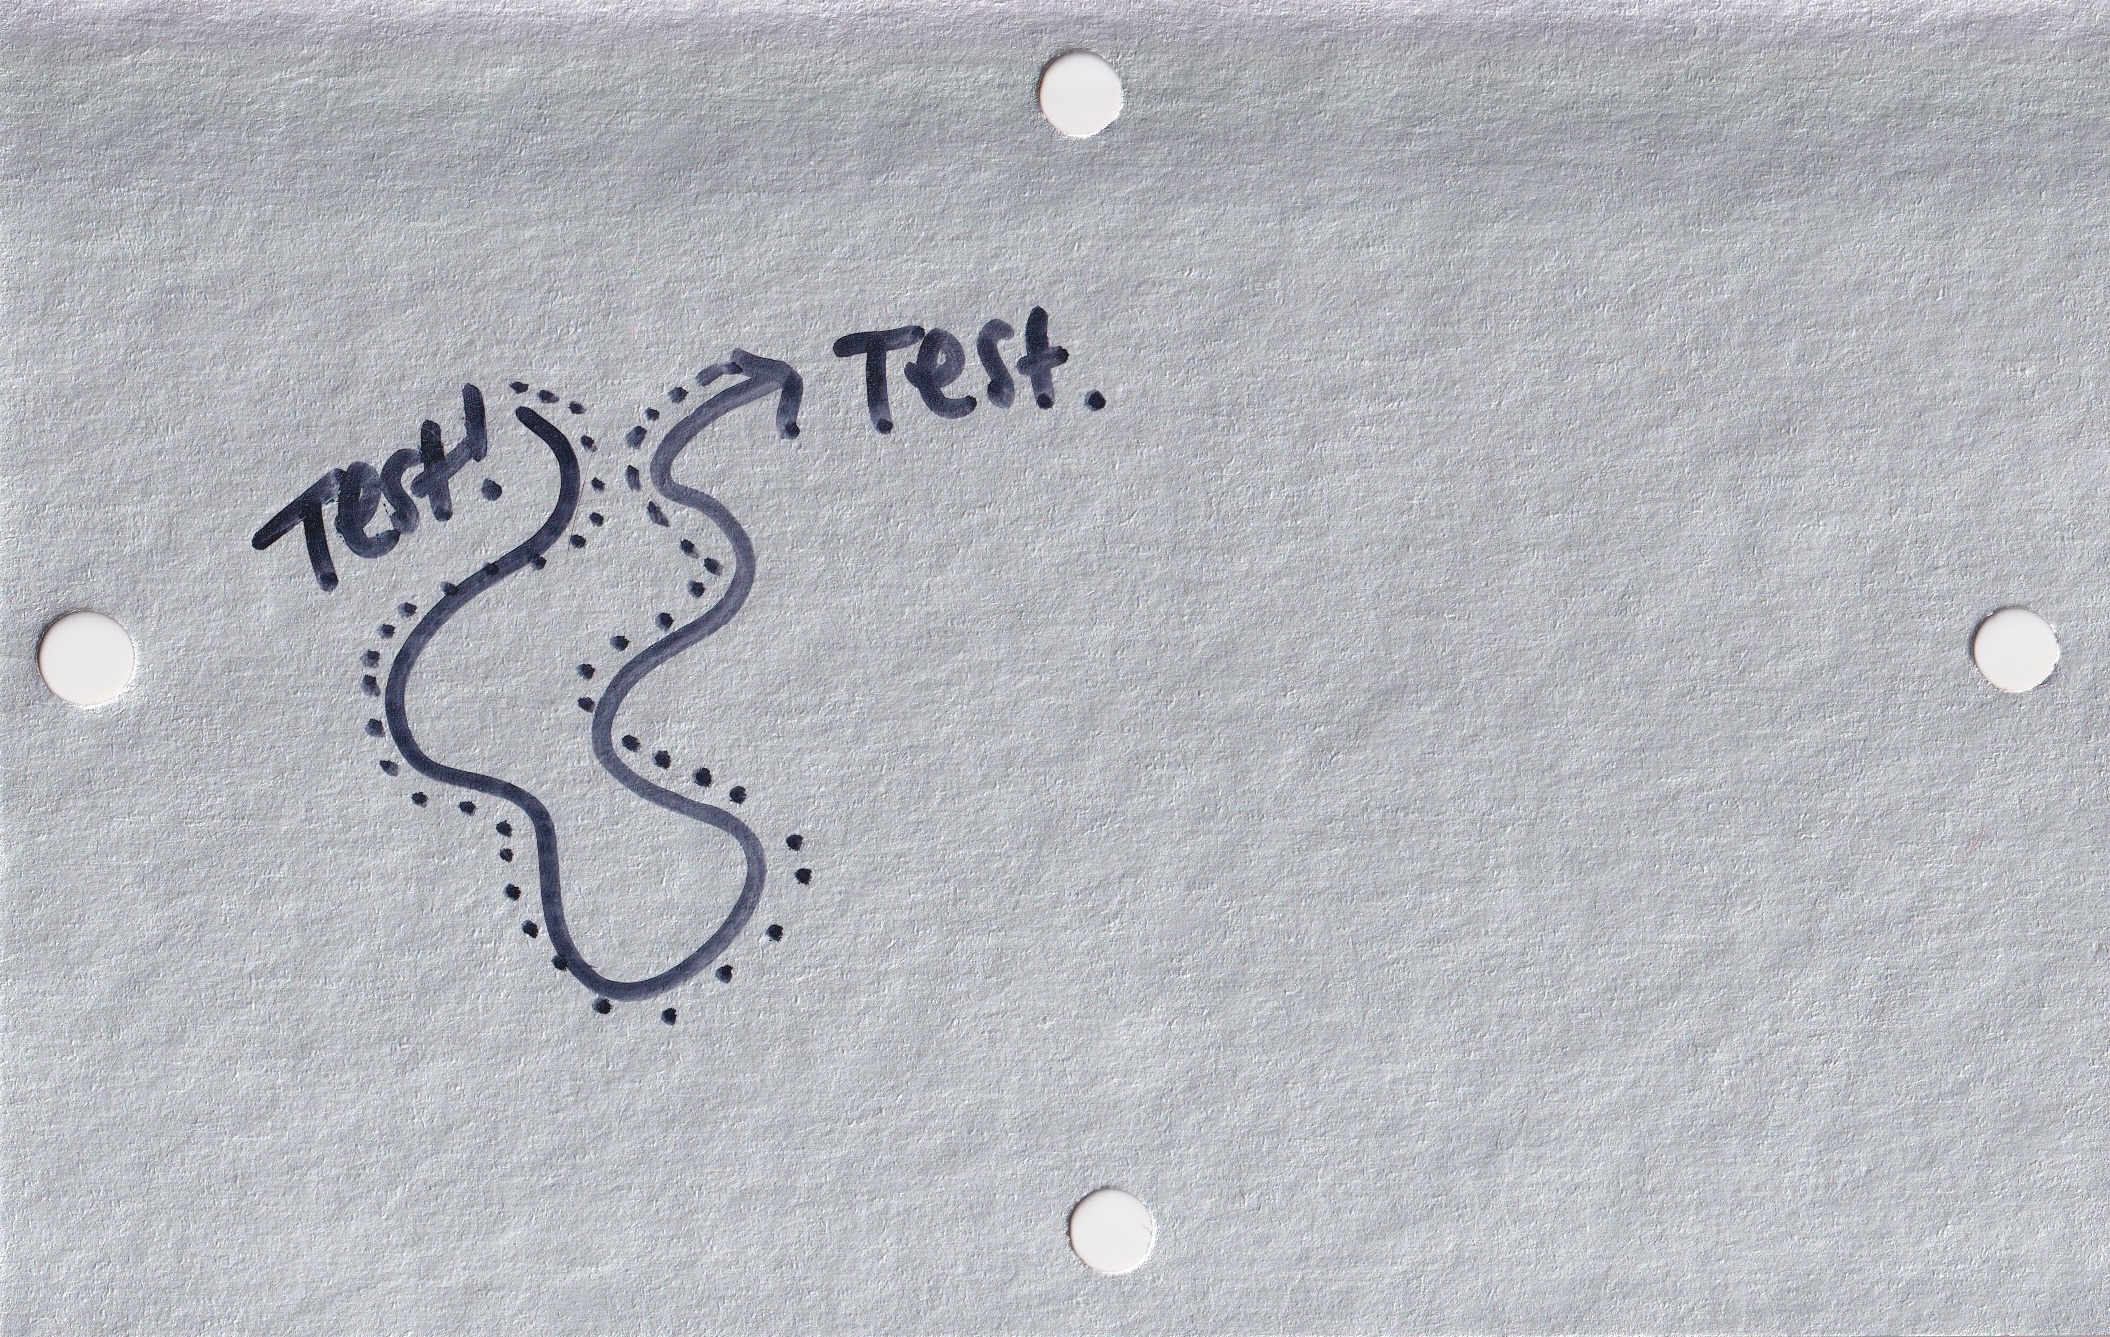 Test!
Test.